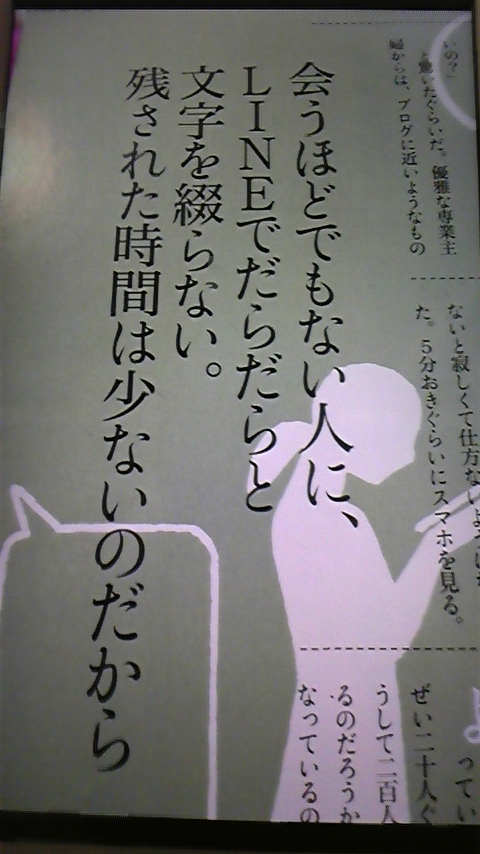 会うほどでもない人に、
LINEでだらだらと
文字を綴らない。
残された時間は少ないのだから
いの？」
と驚いたぐらいだ。優雅な専業主
婦からは、ブログに近いようなもの
ないと寂しくて仕方ない
た。5分おきぐらいにスマホを見る。
ってい
ぜい二十人ぐ
うして二百人
るのだろうか
なっているの